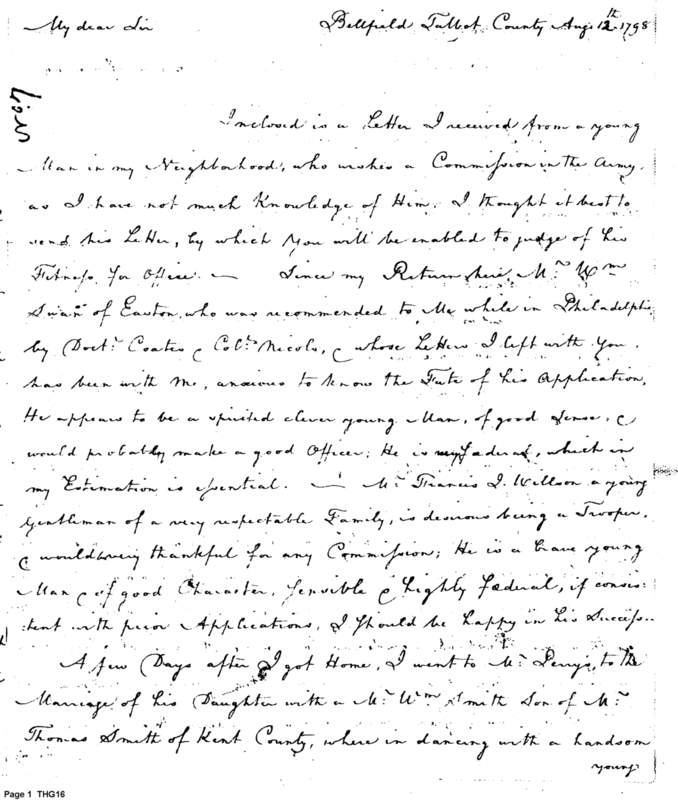 My dear Sir
Bellfield Talbot County Augt 12th 1798
Inclosed is a Letter I received from a young
Man in my Neighborhood, who wishes a Commission in the Army,
as I have not much Knowledge of Him. I thought it best to
send his Letter, by which you will be enabled to judge of his
Fitness for Office. — Since my Return here, Mr. Wm
Swan of Easton, who was recommended to Me while in Philadelphia
by Doctr. Coates & Col. Nicols, & whose Letters I left with You,
has been with me, anxious to know the Fate of his Application,
He appears to be a spirited clever young Man, of good Sense, &
would probably make a good Officer; He is very Federal, which in
my Estimation is essential. — Mr. Francis I. Willson a young
Gentleman of a very respectable Family, is desirous being a Trooper,
& would very thankful for any Commission; He is a brave young
Man & of good Character, sensible & highly Federal, if consis:
:tent with prior Applications, I should be happy in his Success..
A few Days after I got Home, I went to Mr. Perry's, to the
Marriage of his Daughter with a Mr. Wm Smith Son of Mr.
Thomas Smith of Kent County, where in dancing with a handsom
young
Page 1 THG16